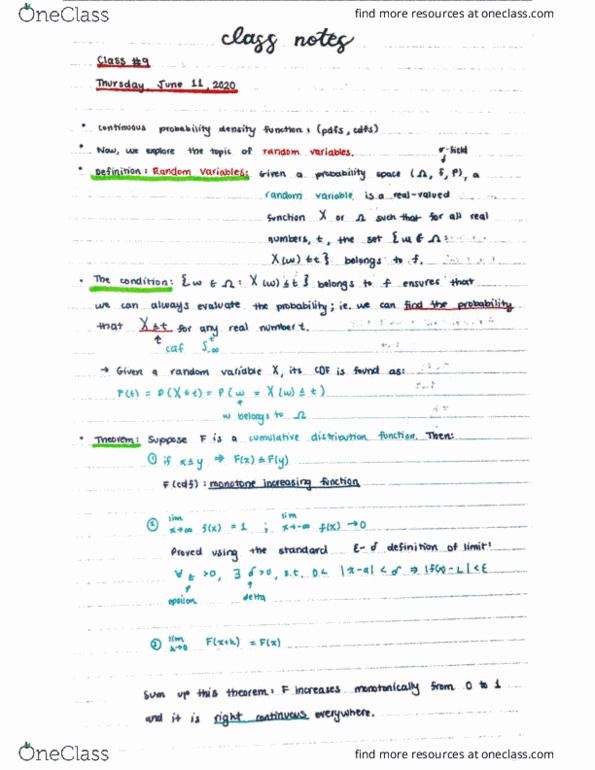 OneClass
find more resources at oneclass.com
class notes
Class #9
Thursday, June 11, 2020
• continuous probability density functions (pdfs, cdfs)
• Now, we explore the topic of random variables.
σ-field
• Definition: Random Variables: Given a probability space (Ω, F, P), a
random variable is a real-valued
function X or Ω such that for all real
numbers, t, the set {ω ∈ Ω:
X(ω) ≤ t} belongs to f.
• The condition: {ω ∈ Ω: X(ω) ≤ t} belongs to f ensures that
we can always evaluate the probability; ie. we can find the probability
that X ≤ t for any real number t.
→ Given a random variable X, its CDF is found as:
F(t) = P(X ≤ t) = P(ω = X(ω) ≤ t)
ω belongs to Ω
• Theorem: Suppose F is a cumulative distribution function. Then:
① if x ≤ y ⇒ F(x) ≤ F(y)
F (cdf): monotone increasing function
② lim x→∞ f(x) = 1 ; lim x→-∞ f(x) → 0
Proved using the standard ε-σ definition of limit!
∀ε >0, ∃ σ >0, s.t. 0 < |x-a| < σ ⇒ |f(x)-L| < ε
epsilon delta
③ lim h→0 F(x+h) = F(x)
Sum up this theorem: F increases monotonically from 0 to 1
and it is right continuous everywhere.
OneClass
find more resources at oneclass.com